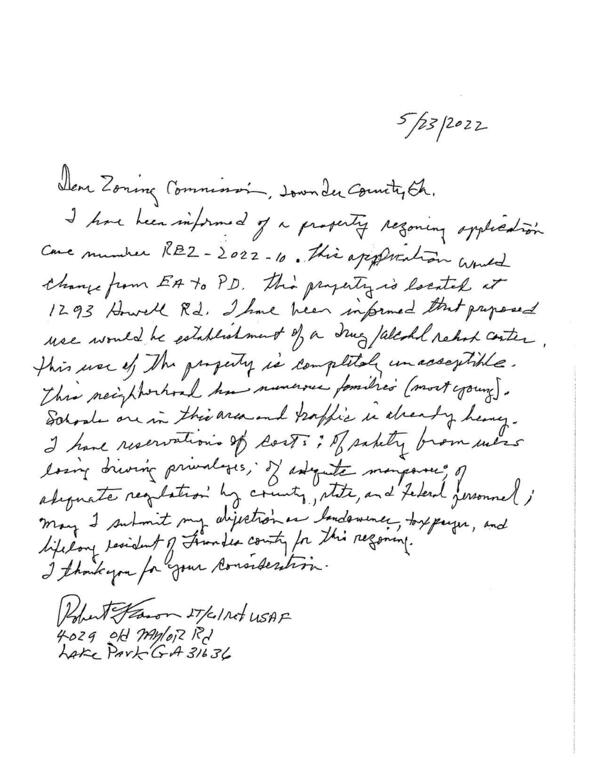 5/23/2022
Dear Zoning Commission, Lowndes County, Ga.
I have been informed of a property rezoning application
case number REZ-2022-10. This application would
change from EA to PD. This property is located at
1293 Howell Rd. I have been informed that proposed
use would be establishment of a drug/alcohol rehab center.
This use of the property is completely unacceptible.
This neighborhood has numerous families (most young).
Schools are in this area and traffic is already heavy.
I have reservations of costs; of safety from users
losing driving privaleges; of adequate manpower; of
adequate regulation by county, state, and Federal personnel;
May I submit my objection as landowner, taxpayer, and
lifelong resident of Lowndes county for this rezoning.
I thank you for your consideration.
Robert LT/Col Ret USAF
4029 Old Naylor Rd
Lake Park GA 31636